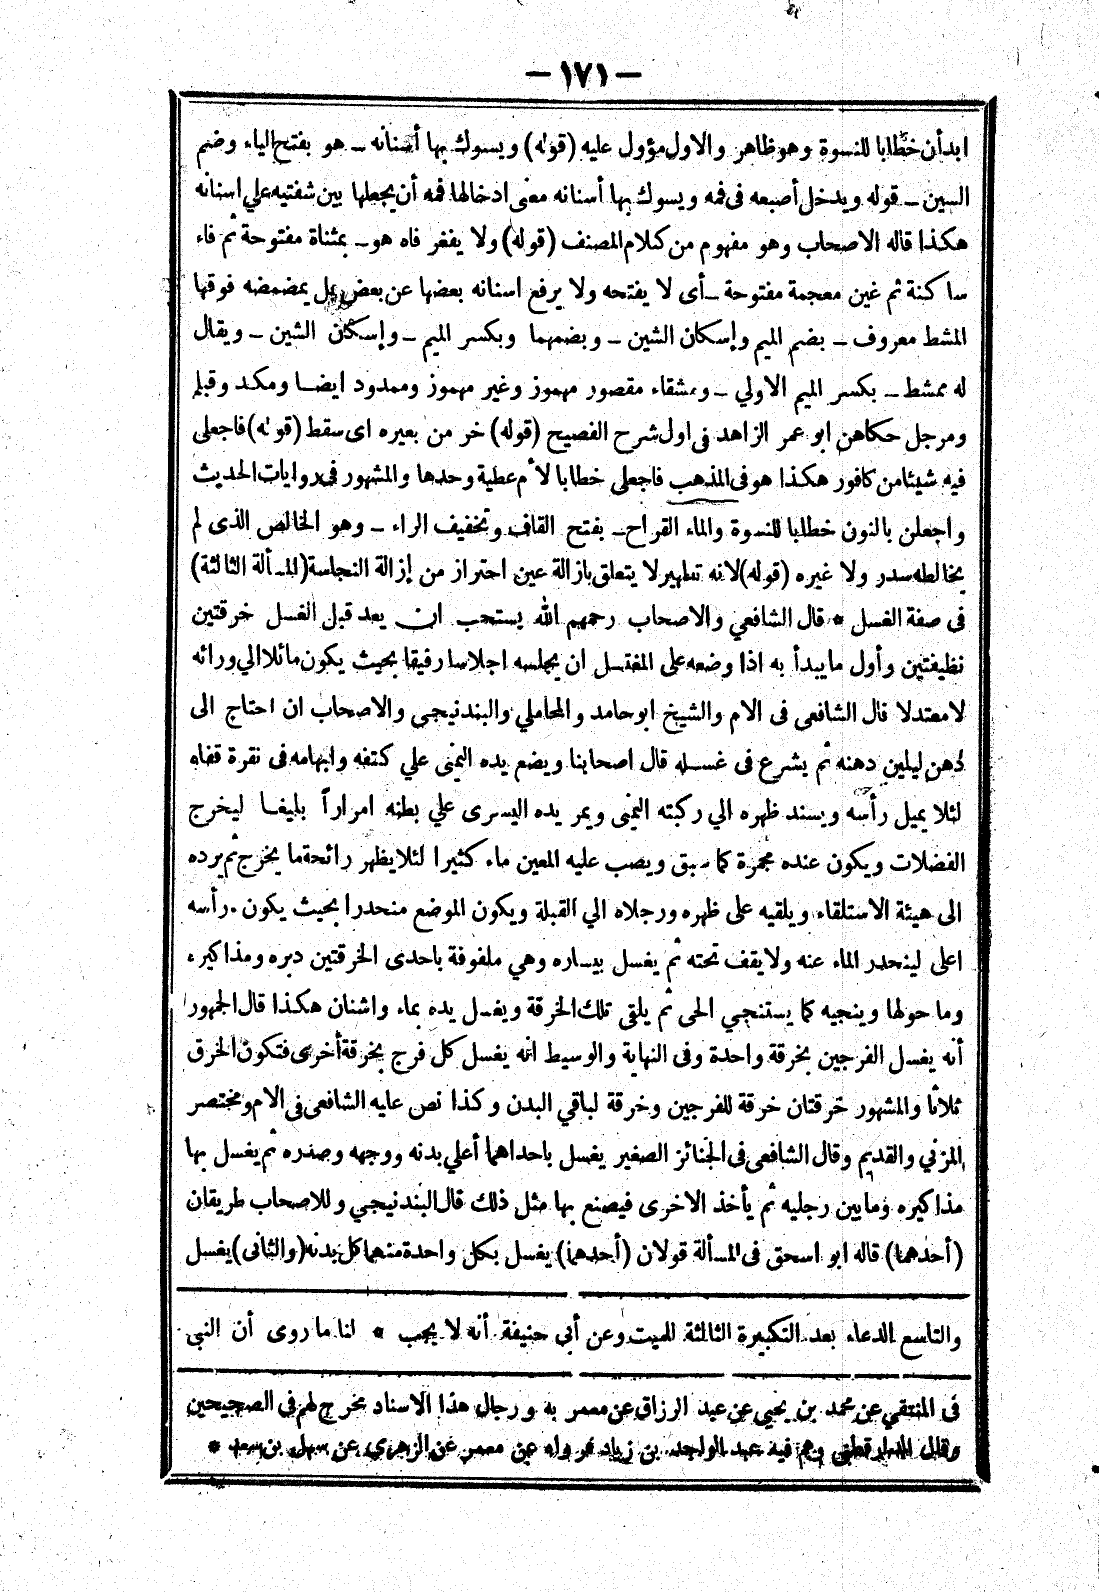 — ١٧١ —
ابدأن خطابا للنسوة وهو ظاهر والاول مؤول عليه (قوله) ويسوك بها أسنانه ــ هو بفتح الياء وضم
السين ــ قوله ويدخل أصبعه فى فمه ويسوك بها أسنانه معنى ادخالها فمه أن يجعلها بين شفتيه علي اسنانه
هكذا قاله الاصحاب وهو مفهوم من كلام المصنف (قوله) ولا يفغر فاه هو ــ بمثناة مفتوحة ثم فاء
ساكنة ثم غين معجمة مفتوحة ــ أى لا يفتحه ولا يرفع اسنانه بعضها عن بعض بل يمضمضه فوقها
المشط معروف ــ بضم الميم وإسكان الشين ــ وبضمهما وبكسر الميم ــ وإسكان الشين ــ ويقال
له ممشط ــ بكسر الميم الاولي ــ ومشقاء مقصور مهموز وغير مهموز وممدود ايضا ومكد وقيلم
ومرجل حكاهن ابو عمر الزاهد فى اول شرح الفصيح (قوله) خر من بعيره اى سقط (قوله) فاجعلى
فيه شيئا من كافور هكذا هو فى المذهب فاجعلى خطابا لأم عطية وحدها والمشهور فى روايات الحديث
واجعلن بالنون خطابا للنسوة والماء القراح ــ بفتح القاف وتخفيف الراء ــ وهو الخالص الذى لم
يخالطه سدر ولا غيره (قوله) لانه تطهير لا يتعلق بازالة عين احتراز من إزالة النجاسة (المسألة الثالثة)
فى صفة الغسل * قال الشافعي والاصحاب رحمهم الله يستحب ان يعد قبل الغسل خرقتين
نظيفتين وأول ما يبدأ به اذا وضعه على المغتسل ان يجلسه اجلاسا رفيقا بحيث يكون مائلا الي ورائه
لا معتدلا قال الشافعى فى الام والشيخ ابو حامد والمحاملي والبندنيجي والاصحاب ان احتاج الى
دهن ليلين دهنه ثم يشرع فى غسله قال اصحابنا ويضع يده اليمنى علي كتفه وابهامه فى نقرة قفاه
لئلا يميل رأسه ويسند ظهره الي ركبته اليمنى ويمر يده اليسرى علي بطنه امراراً بليغا ليخرج
الفضلات ويكون عنده مجمرة كما سبق ويصب عليه المعين ماء كثيرا لئلا يظهر رائحة ما يخرج ثم يرده
الى هيئة الاستلقاء ويلقيه على ظهره ورجلاه الي القبلة ويكون الموضع منحدرا بحيث يكون رأسه
اعلى لينحدر الماء عنه ولا يقف تحته ثم يغسل بيساره وهي ملفوفة باحدى الخرقتين دبره ومذاكيره
وما حولها وينجيه كما يستنجي الحى ثم يلقى تلك الخرقة ويغسل يده بماء واشنان هكذا قال الجمهور
أنه يغسل الفرجين بخرقة واحدة وفى النهاية والوسيط انه يغسل كل فرج بخرقة أخرى فتكون الخرق
ثلاثا والمشهور خرقتان خرقة للفرجين وخرقة لباقي البدن وكذا نص عليه الشافعى فى الام ومختصر
المزني والقديم وقال الشافعى فى الجنائز الصغير يغسل باحداهما أعلي بدنه ووجهه وصدره ثم يغسل بها
مذاكيره وما بين رجليه ثم يأخذ الاخرى فيصنع بها مثل ذلك قال البندنيجي وللاصحاب طريقان
(أحدهما) قاله ابو اسحق فى المسألة قولان (أحدهما) يغسل بكل واحدة منهما كل بدنه (والثانى) يغسل
والتاسع الدعاء بعد التكبيرة الثالثة للميت وعن أبى حنيفة أنه لا يجب * لنا ما روى أن النبى
فى المنتقي عن محمد بن يحيى عن عبد الرزاق عن معمر به ورجال هذا الاسناد مخرج لهم فى الصحيحين
وقال الدارقطنى وهم فيه عبد الواحد بن زياد فرواه عن معمر عن الزهري عن سهل بن سعد *